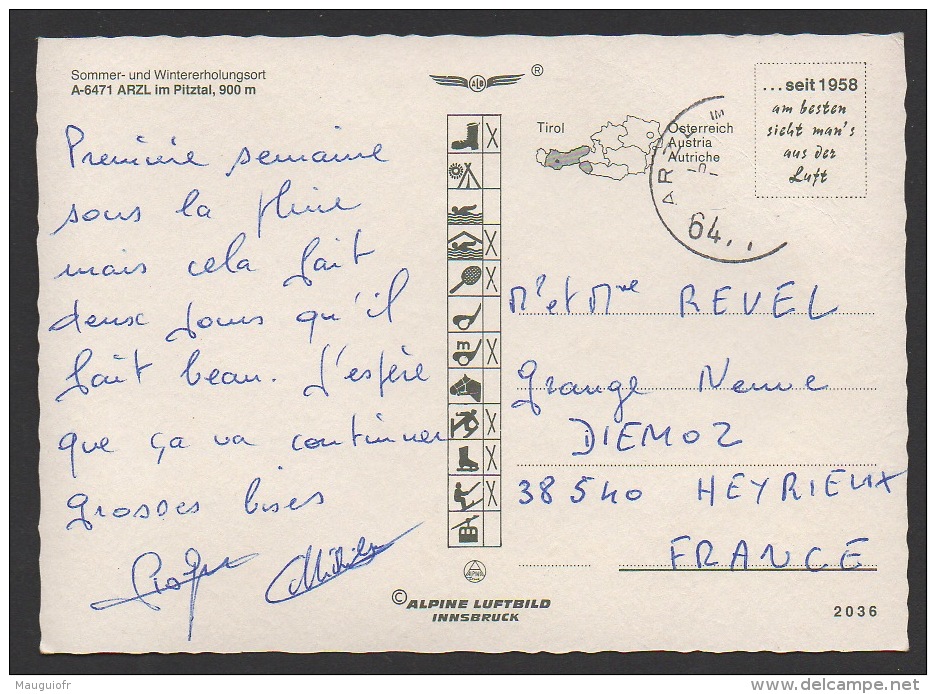 Sommer- und Wintererholungsort
A-6471 ARZL im Pitztal, 900 m
Première semaine
sous la pluie
mais cela fait
deux jours qu'il
fait beau. J'espère
que ça va continuer
grosses bises
ALB
®
m
Tirol
Österreich
Austria
Autriche
64
...seit 1958
am besten
sieht man's
aus der
Luft
Mr et Mme REVEL
Grange Neuve
DIEMOZ
38540 HEYRIEUX
FRANCE
© ALPINE LUFTBILD
INNSBRUCK
2036
Mauguiofr
www.delcampe.net